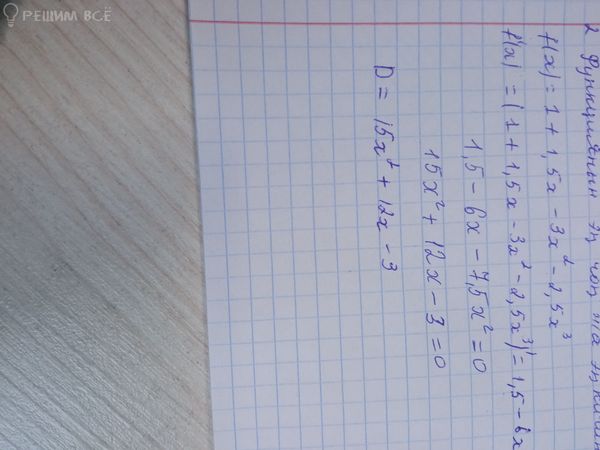 РЕШИМ ВСЁ
2 Функциянын эң чоң жа эң
f(x) = 1 + 1,5x - 3x² - 2,5x³
f'(x) = (1 + 1,5x - 3x² - 2,5x³)' = 1,5 - 6x
1,5 - 6x - 7,5x² = 0
15x² + 12x - 3 = 0
D = 15x² + 12x - 3